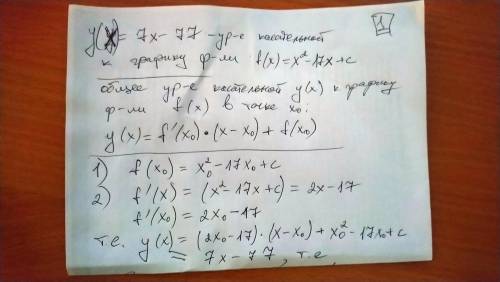 y(x) = 7x - 77 - ур-е касательной
1
к графику ф-ли f(x) = x² - 17x + c
общее ур-е касательной y(x) к графику
ф-ли f(x) в точке x₀:
y(x) = f'(x₀)·(x - x₀) + f(x₀)
1) f(x₀) = x₀² - 17x₀ + c
2) f'(x) = (x² - 17x + c) = 2x - 17
f'(x₀) = 2x₀ - 17
т.е. y(x) = (2x₀ - 17)·(x - x₀) + x₀² - 17x₀ + c
= 7x - 77, т.е